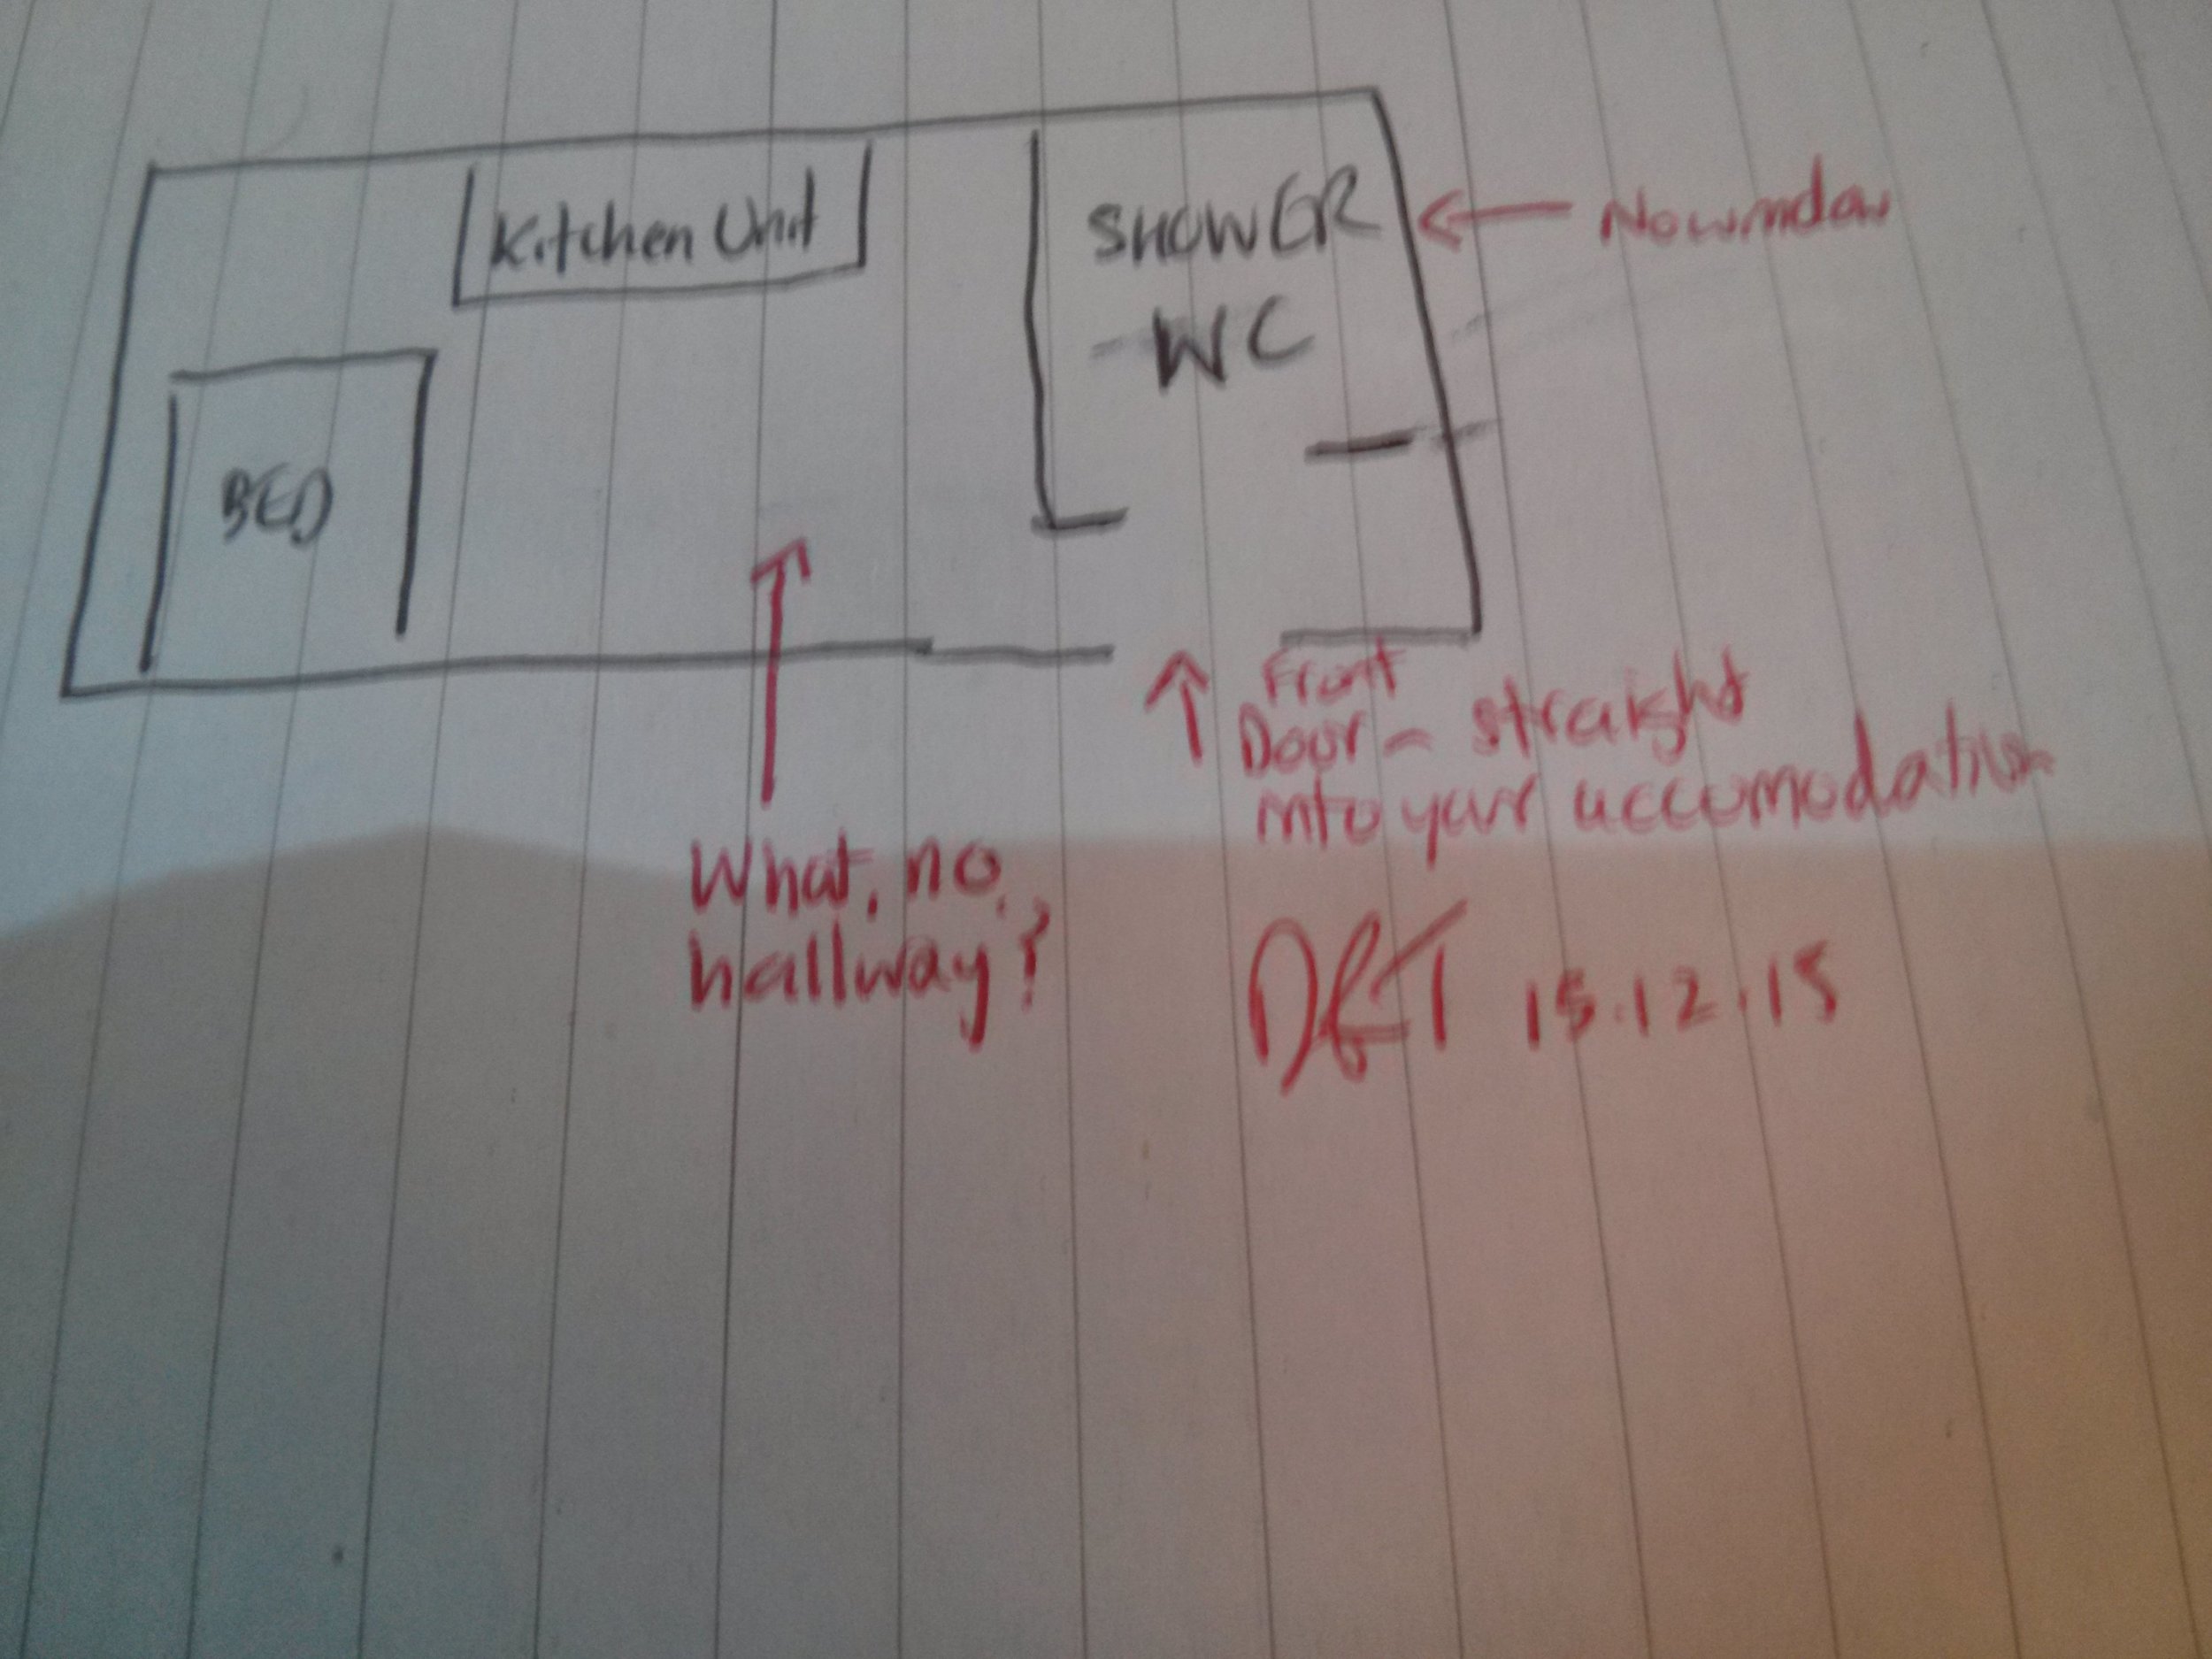 Kitchen Unit
SHOWER
WC
BED
No window
Front
Door - straight
into your accomodation
What, no
hallway?
15.12.15